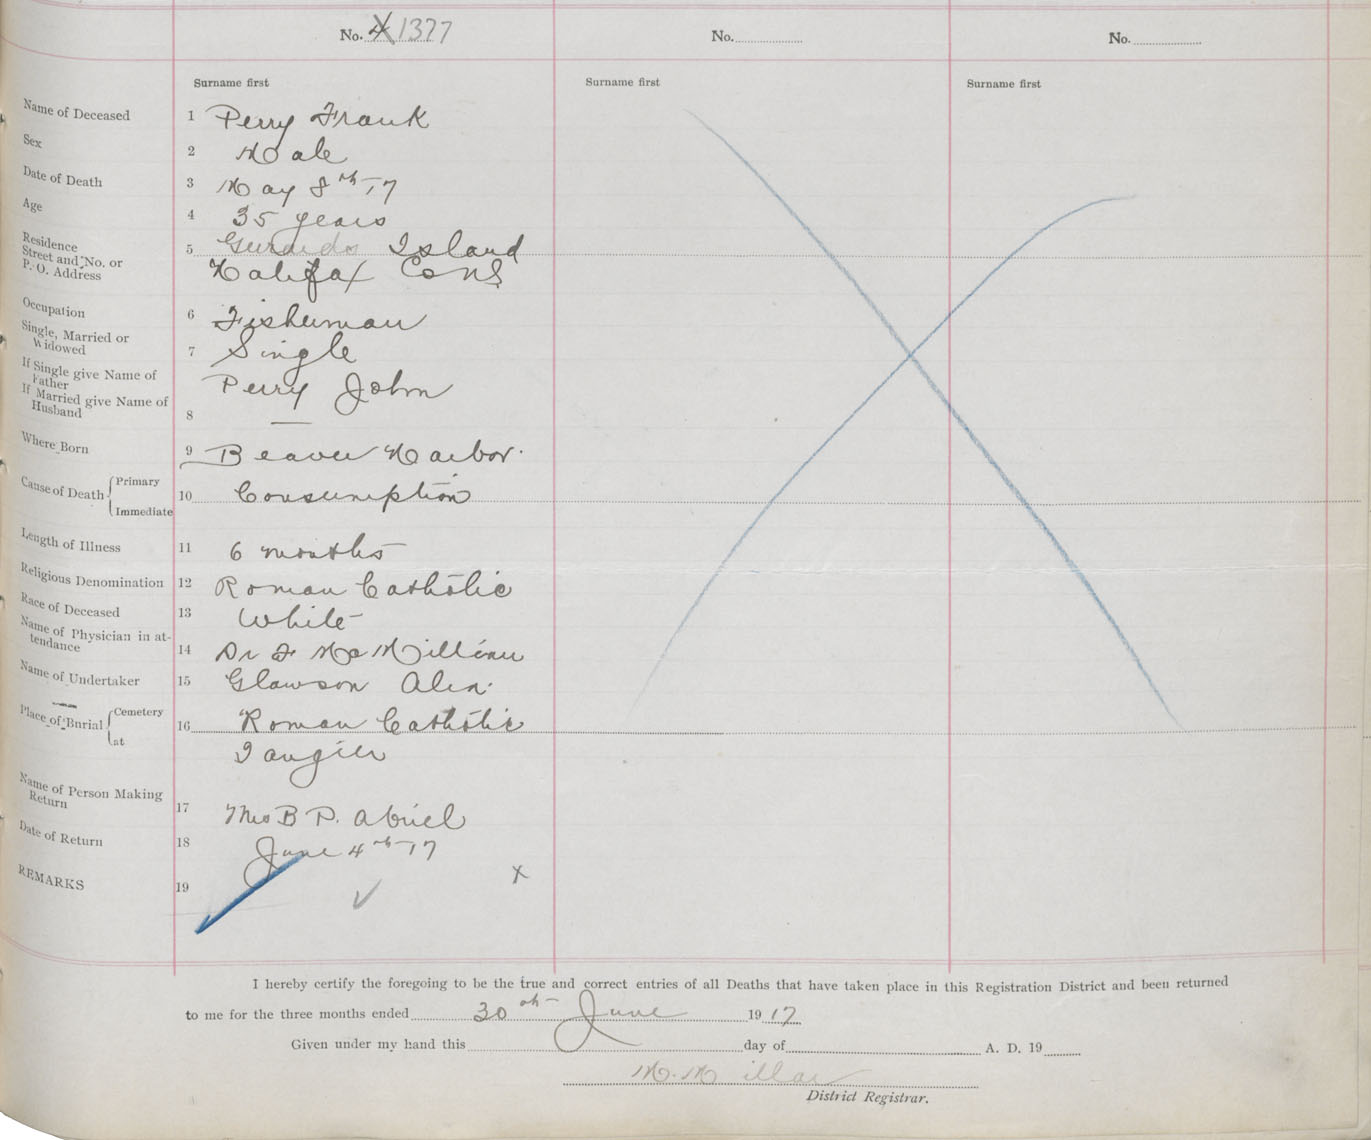 No. 4 1377
No.
No.
Surname first
Surname first
Surname first
Name of Deceased 1 Perry Frank
Sex 2 Male
Date of Death 3 May 8th 17
Age 4 35 years
Residence Street and No. or P. O. Address 5 Island
Halifax Co NS
Occupation 6 Fisherman
Single, Married or Widowed 7 Single
If Single give Name of Father Perry John
If Married give Name of Husband 8 —
Where Born 9 Beaver Harbor.
Cause of Death { Primary Immediate 10 Consumption
Length of Illness 11 6 months
Religious Denomination 12 Roman Catholic
Race of Deceased 13 White
Name of Physician in attendance 14 Dr F McMillian
Name of Undertaker 15 Glawson Alex.
Place of Burial { Cemetery at 16 Roman Catholic
Tangier
Name of Person Making Return 17 Mrs B P. Abriel
Date of Return 18 June 4th 17
REMARKS 19
I hereby certify the foregoing to be the true and correct entries of all Deaths that have taken place in this Registration District and been returned
to me for the three months ended 30th June 1917
Given under my hand this day of A. D. 19
M. Millar
District Registrar.